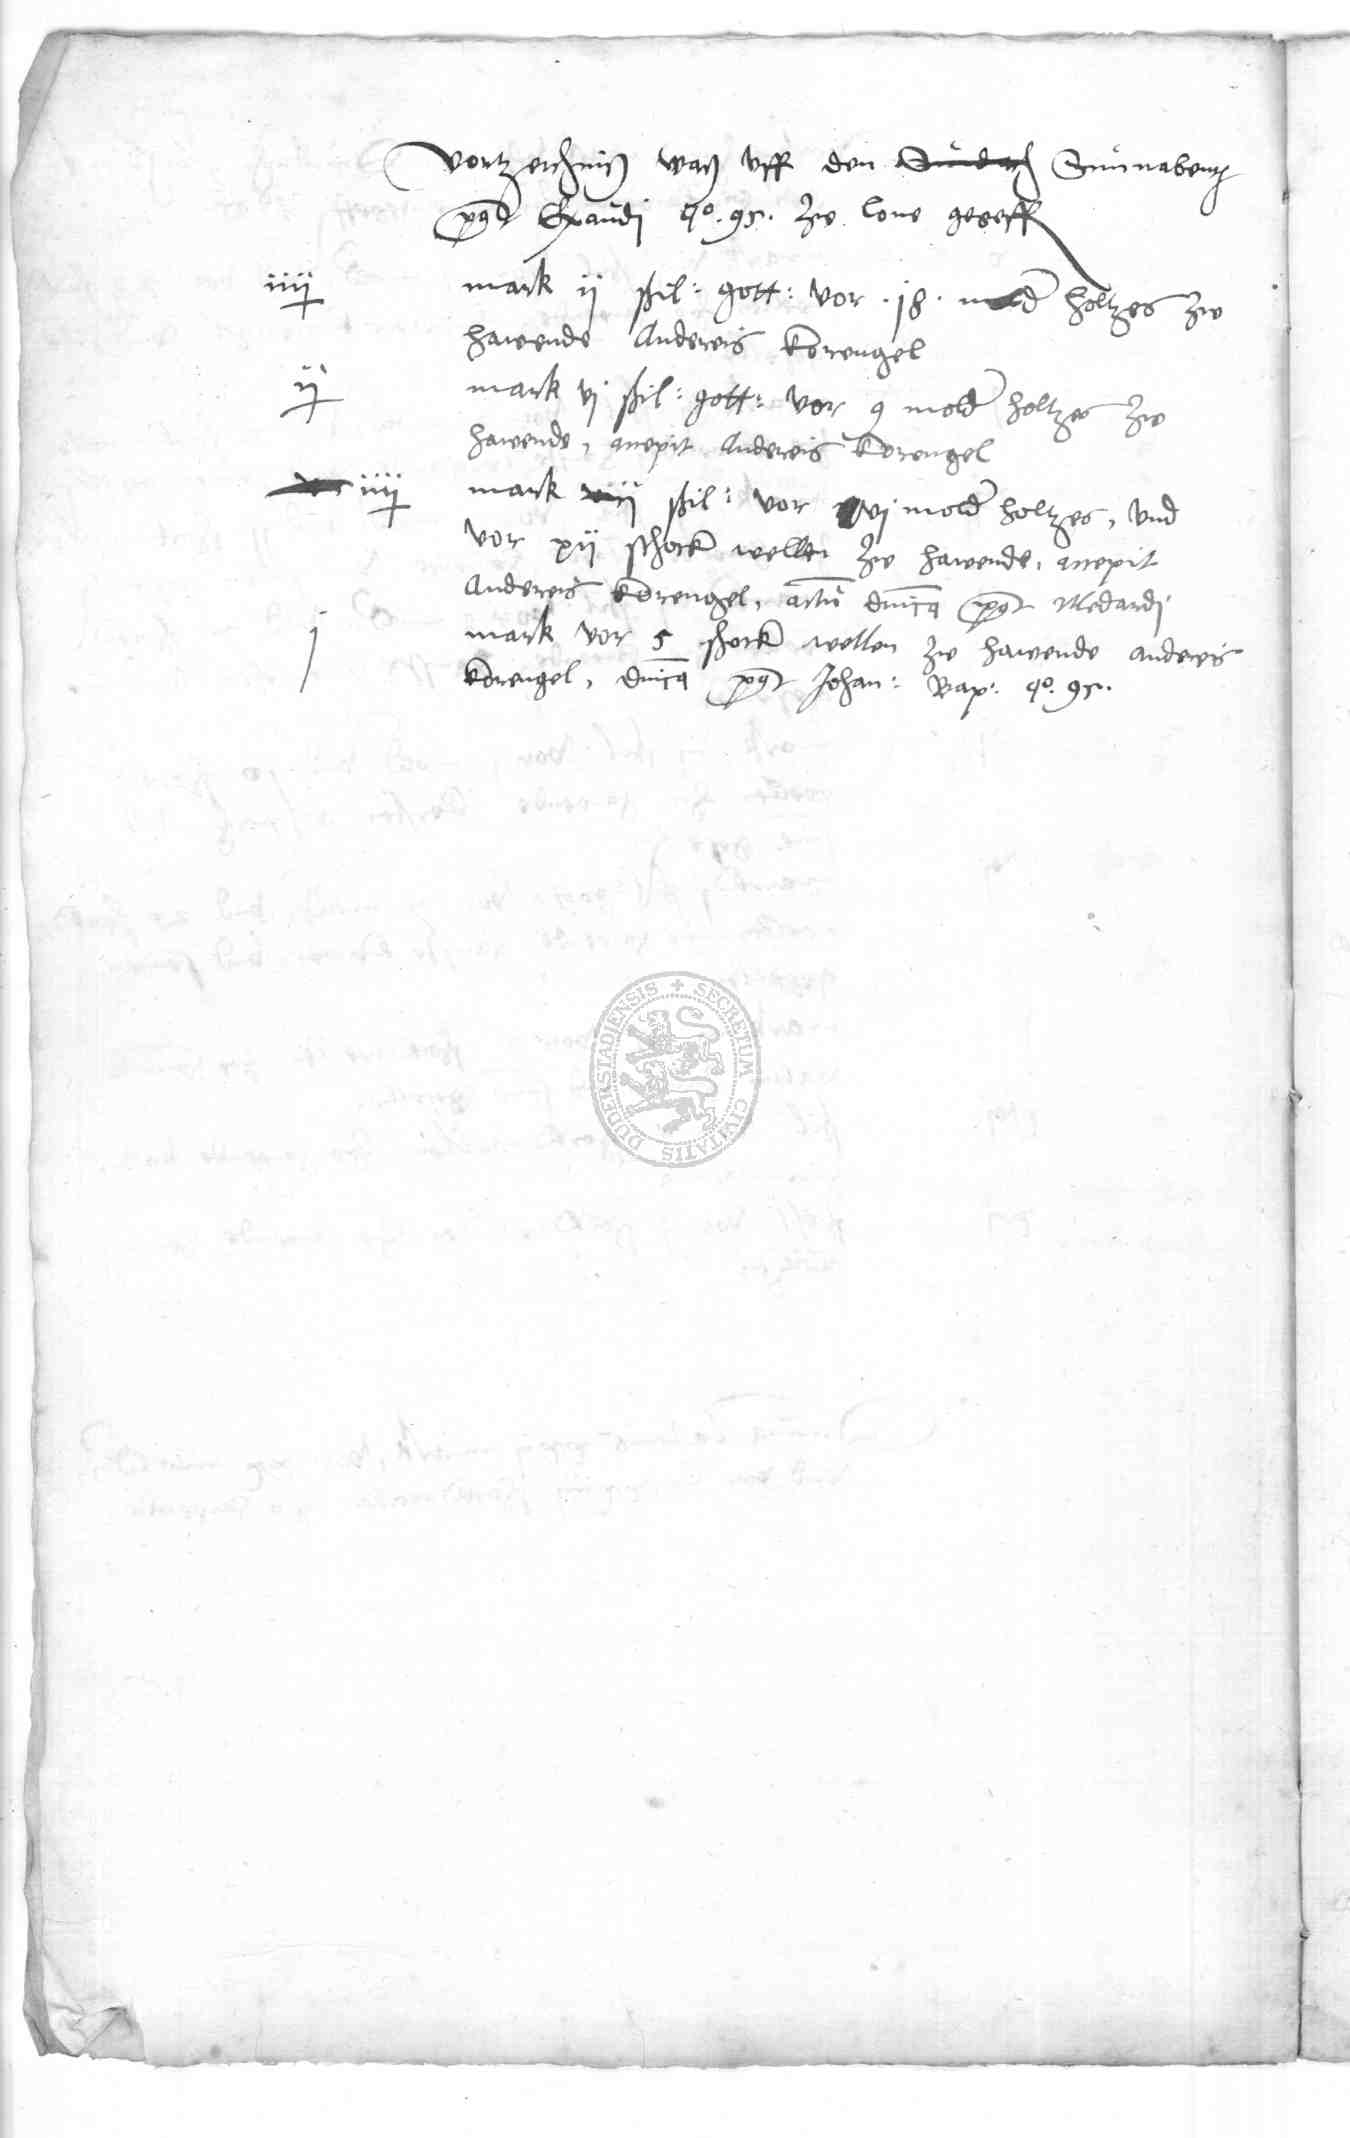 Vortzeichniß waß vff den Sundach Sunnabentz
post Exaudi ao. 95. zw lone geneff
iiii mark ii ßil: gott: vor .18. mold holtzes zw
hawende Andereis Korengel
ii mark vj ßil: gott: vor 9 mold holtzes zw
hawende, accepit Andereis Korengel
iiii mark ßil: vor vj mold holtzes, vnd
vor xii schock wellen zw hawende, accepit
Andereis Korengel, actum dnica post Medardi
j mark vor 5 schock wellen zw hawende Andereis
Korengel, dnica post Johan: Bap: ao. 95.
SECRETUM CIVITATIS DUDERSTADIENSIS